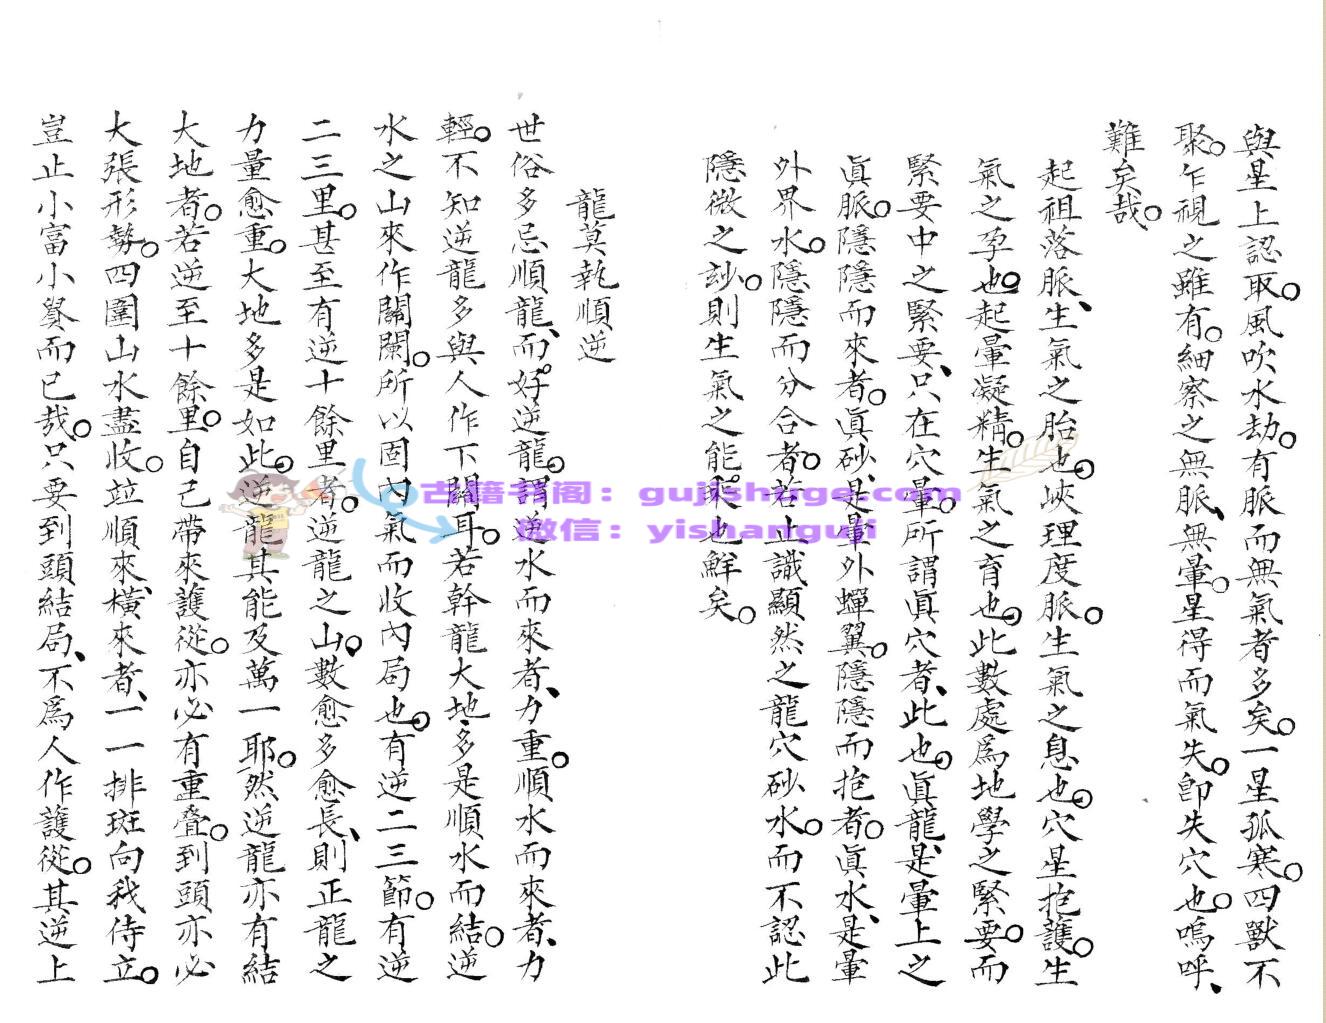 與星上認取。風吹水劫。有脈而無氣者多矣。一星孤寒。四獸不
聚。乍視之雖有。細察之無脈、無暈。星得而氣失。即失穴也。嗚呼、
難矣哉。
起祖落脈、生氣之胎也。峽理度脈。生氣之息也。穴星抱護。生
氣之孕也。起暈凝精。生氣之育也。此數處爲地學之緊要。而
緊要中之緊要、只在穴暈。所謂眞穴者、此也。眞龍、是暈上之
眞脈。隱隱而來者。眞砂、是暈外蟬翼。隱隱而抱者。眞水、是暈
外界水。隱隱而分合者。若止識顯然之龍穴砂水。而不認此
隱微之玅。則生氣之能乘也鮮矣。
龍莫執順逆
世俗多忌順龍、而好逆龍。謂逆水而來者、力重。順水而來者、力
輕。不知逆龍多與人作下關耳。若幹龍大地、多是順水而結。逆
水之山來作關闌。所以固內氣而收內局也。有逆二三節。有逆
二三里。甚至有逆十餘里者。逆龍之山、數愈多愈長、則正龍之
力量愈重。大地多是如此。逆龍其能及萬一耶。然逆龍亦有結
大地者。若逆至十餘里。自己帶來護從。亦必有重疊。到頭亦必
大張形勢。四圍山水盡收。竝順來、橫來者、一一排班向我侍立。
豈止小富小貴而已哉。只要到頭結局、不爲人作護從。其逆上
古籍书阁：gujishuge.com
微信：yishanguji